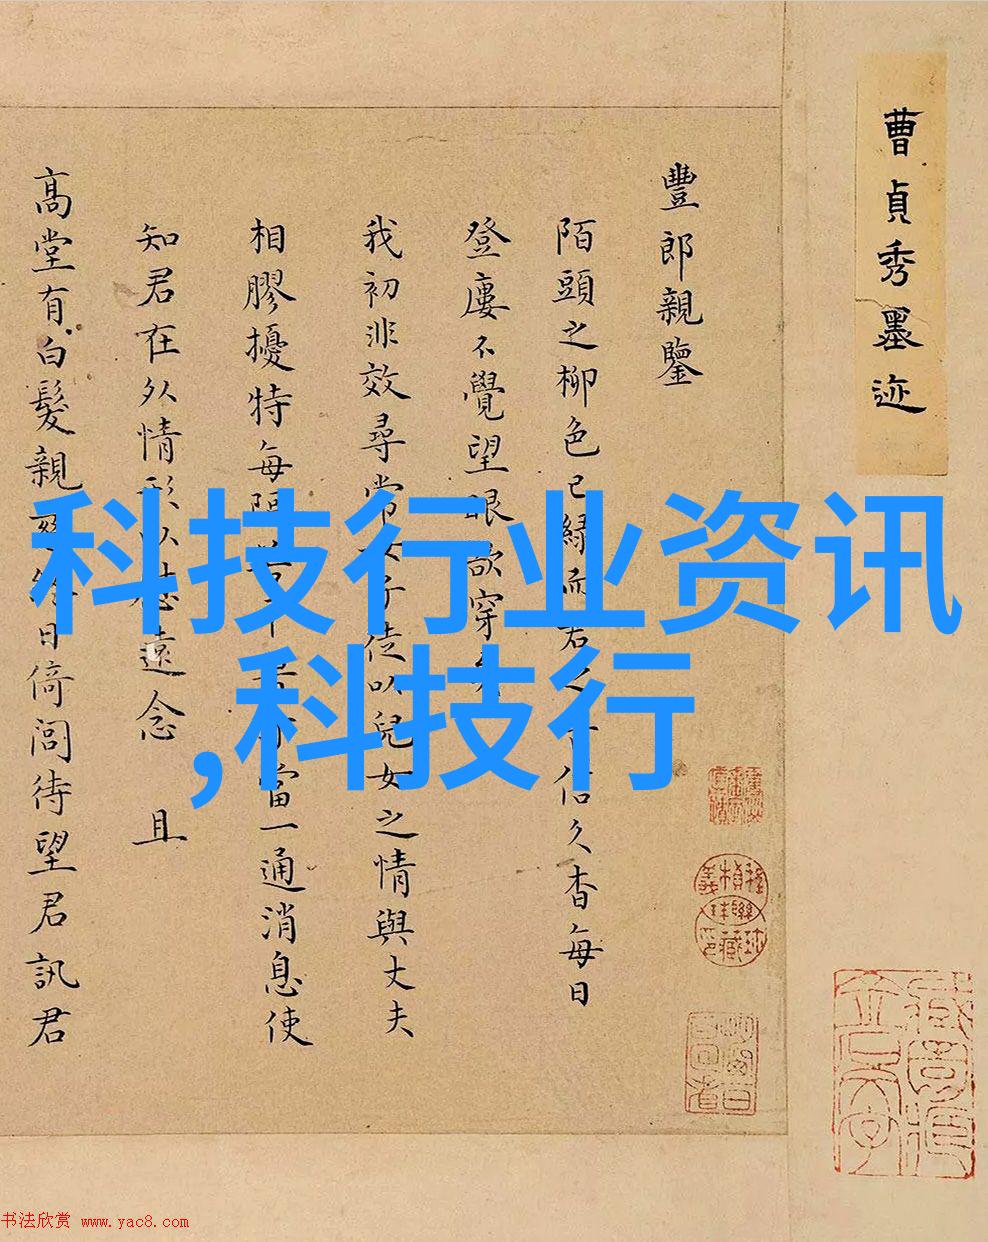 曹貞秀墨迹
豐郎親鑒
陌頭之柳色已綠而君之信久杳每日
登廔不覺望眼欲穿矣
我初非效尋常女子徒以兒女之情與丈夫
相膠擾特每閒當一通消息使
知君在外情形以慰遠念 且
高堂有白髮親日倚閭待望君訊君
科技行业资讯
,科技行
书法欣赏 www.yac8.com